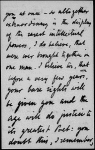 you at once — so altogether
extraordinary is the display
of the rarest intellectual
powers. I do believe, that
were ever brought together in
one man. I believe too, that
in a very few years,
your bare rights will
be given you and the
age will do justice to
its greatest poet: you
doubt this, I remember,